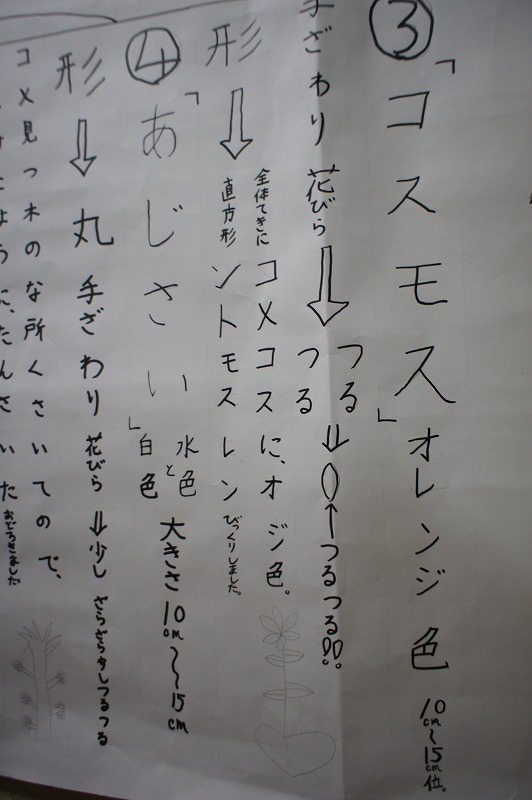 ③「コスモス」オレンジ色 10cm〜15cm位。
手ざわり 花びら ⇒ つるつる ⇒ ←つるつる!!
形 ⇒ 全体てきに直方形 コメント コスモスに、オレンジ色。びっくりしました。
④「あじさい」水色と白色 大きさ10cm〜〜15cm
形 ⇒ 丸 手ざわり 花びら ⇒ 少しさらさら少しつるつる
コメ見つ木のな所くさいてので、
ように、たんさいたおどろきました